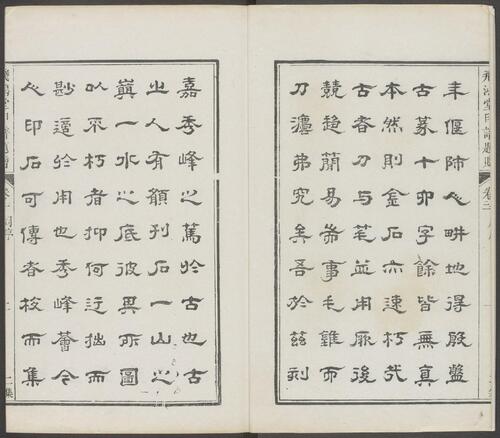 偃師人畊地得殷盤
古篆十字餘皆無真
本然則金石亦速朽哉
古者刀与笔並用厥後
競趋簡易希事毛錐而
刀灋弗究矣吾於茲刻
嘉秀峰之篤於古也古
之人有願刊石一山之
巔一水之底彼其所圖
以不朽者抑何迂拙而
尠適於用也秀峰薈今
人印石可傳者校而集
二集